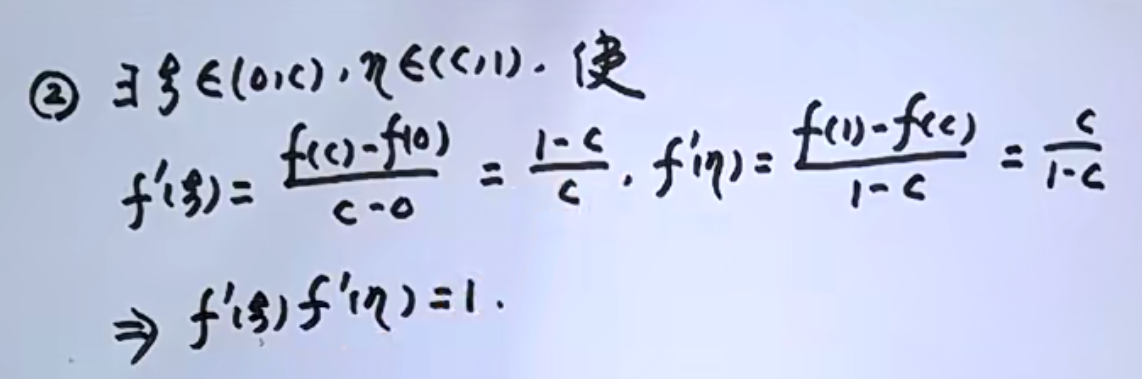 ② ∃ξ∈(0,c), η∈(c,1). 使
f'(ξ) = \frac{f(c)-f(0)}{c-0} = \frac{1-c}{c}, f'(η) = \frac{f(1)-f(c)}{1-c} = \frac{c}{1-c}
⇒ f'(ξ)f'(η)=1.